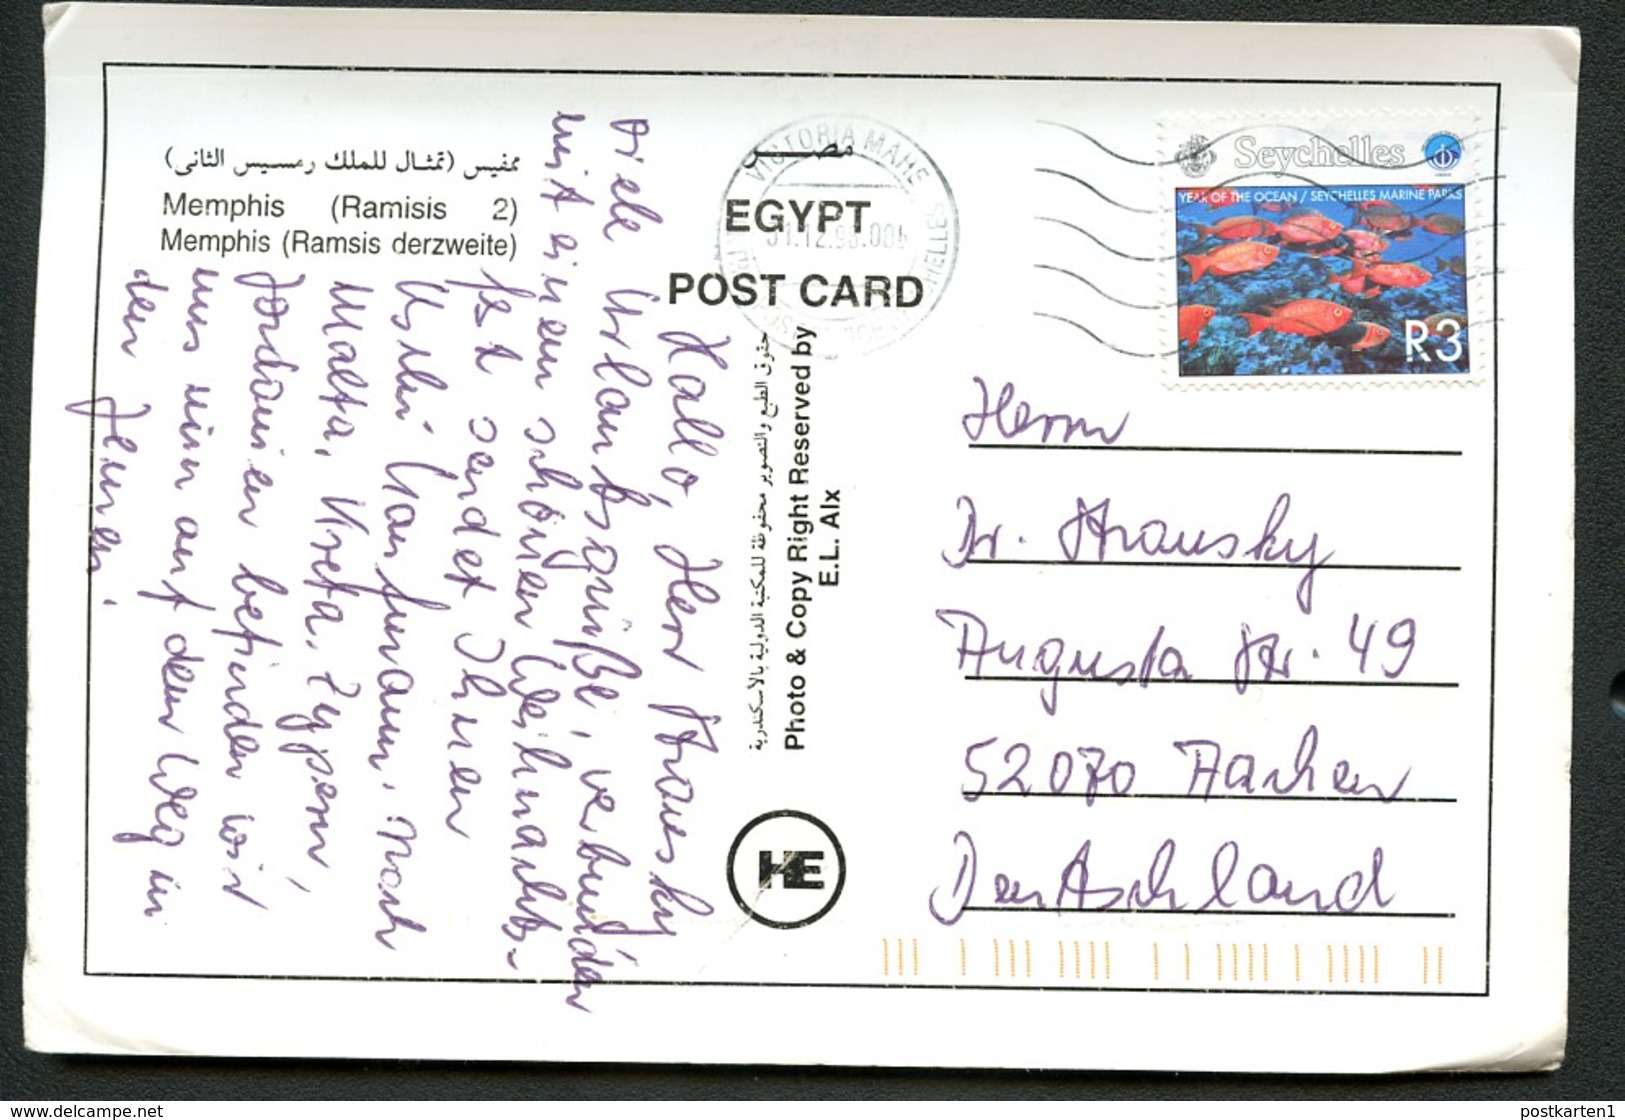 ممفيس (تمثال للملك رمسيس الثانى)
Memphis (Ramisis 2)
Memphis (Ramsis derzweite)
مصر
EGYPT
POST CARD
VICTORIA MAHE
SEYCHELLES
31.12.98.00
Seychelles
YEAR OF THE OCEAN / SEYCHELLES MARINE PARKS
R3
Hallo, Herr Stransky
Viele Urlaubsgrüße, verbunden
mit einem schönen Weihnachts-
fest sendet Ihnen
Uschi Kaufmann. Nach
Malta, Kreta, Zypern,
Jordanien befinden wir
uns nun auf dem Weg in
den Jemen.
حقوق الطبع والتصوير محفوظة للمكتبة الدولية بالأسكندرية
Photo & Copy Right Reserved by
E.L. Alx
HE
Herrn
Dr. Stransky
Augusta Str. 49
52070 Aachen
Deutschland
https://www.delcampe.net
postkarten1